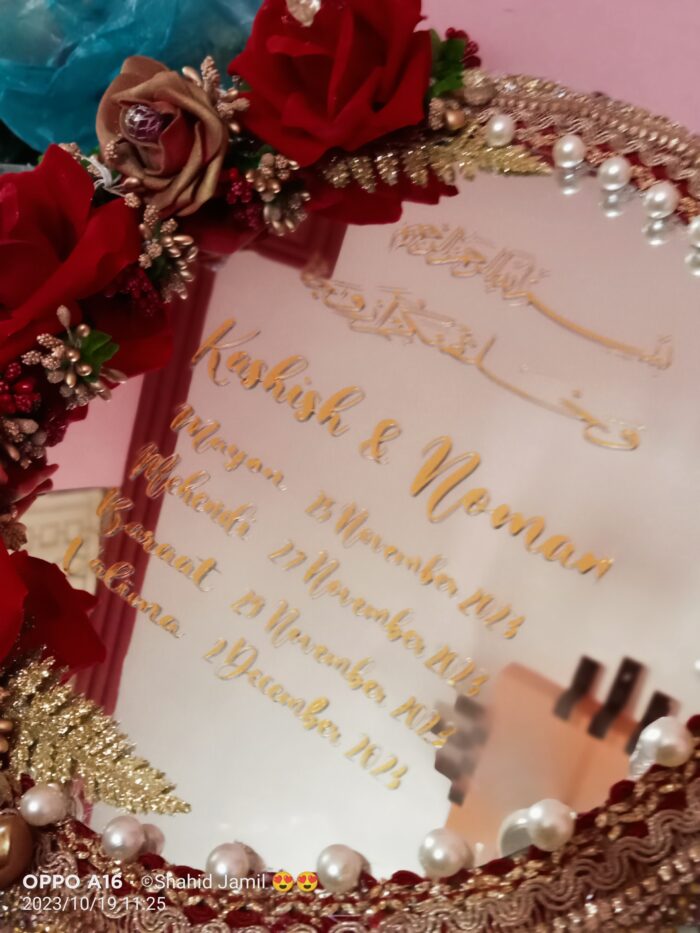 Kashish & Noman
Mayun 25 November 2023
Mehendi 27 November 2023
Baraat 29 November 2023
Valima 2 December 2023
OPPO A16 · ©Shahid Jamil 😍😍
2023/10/19 11:25